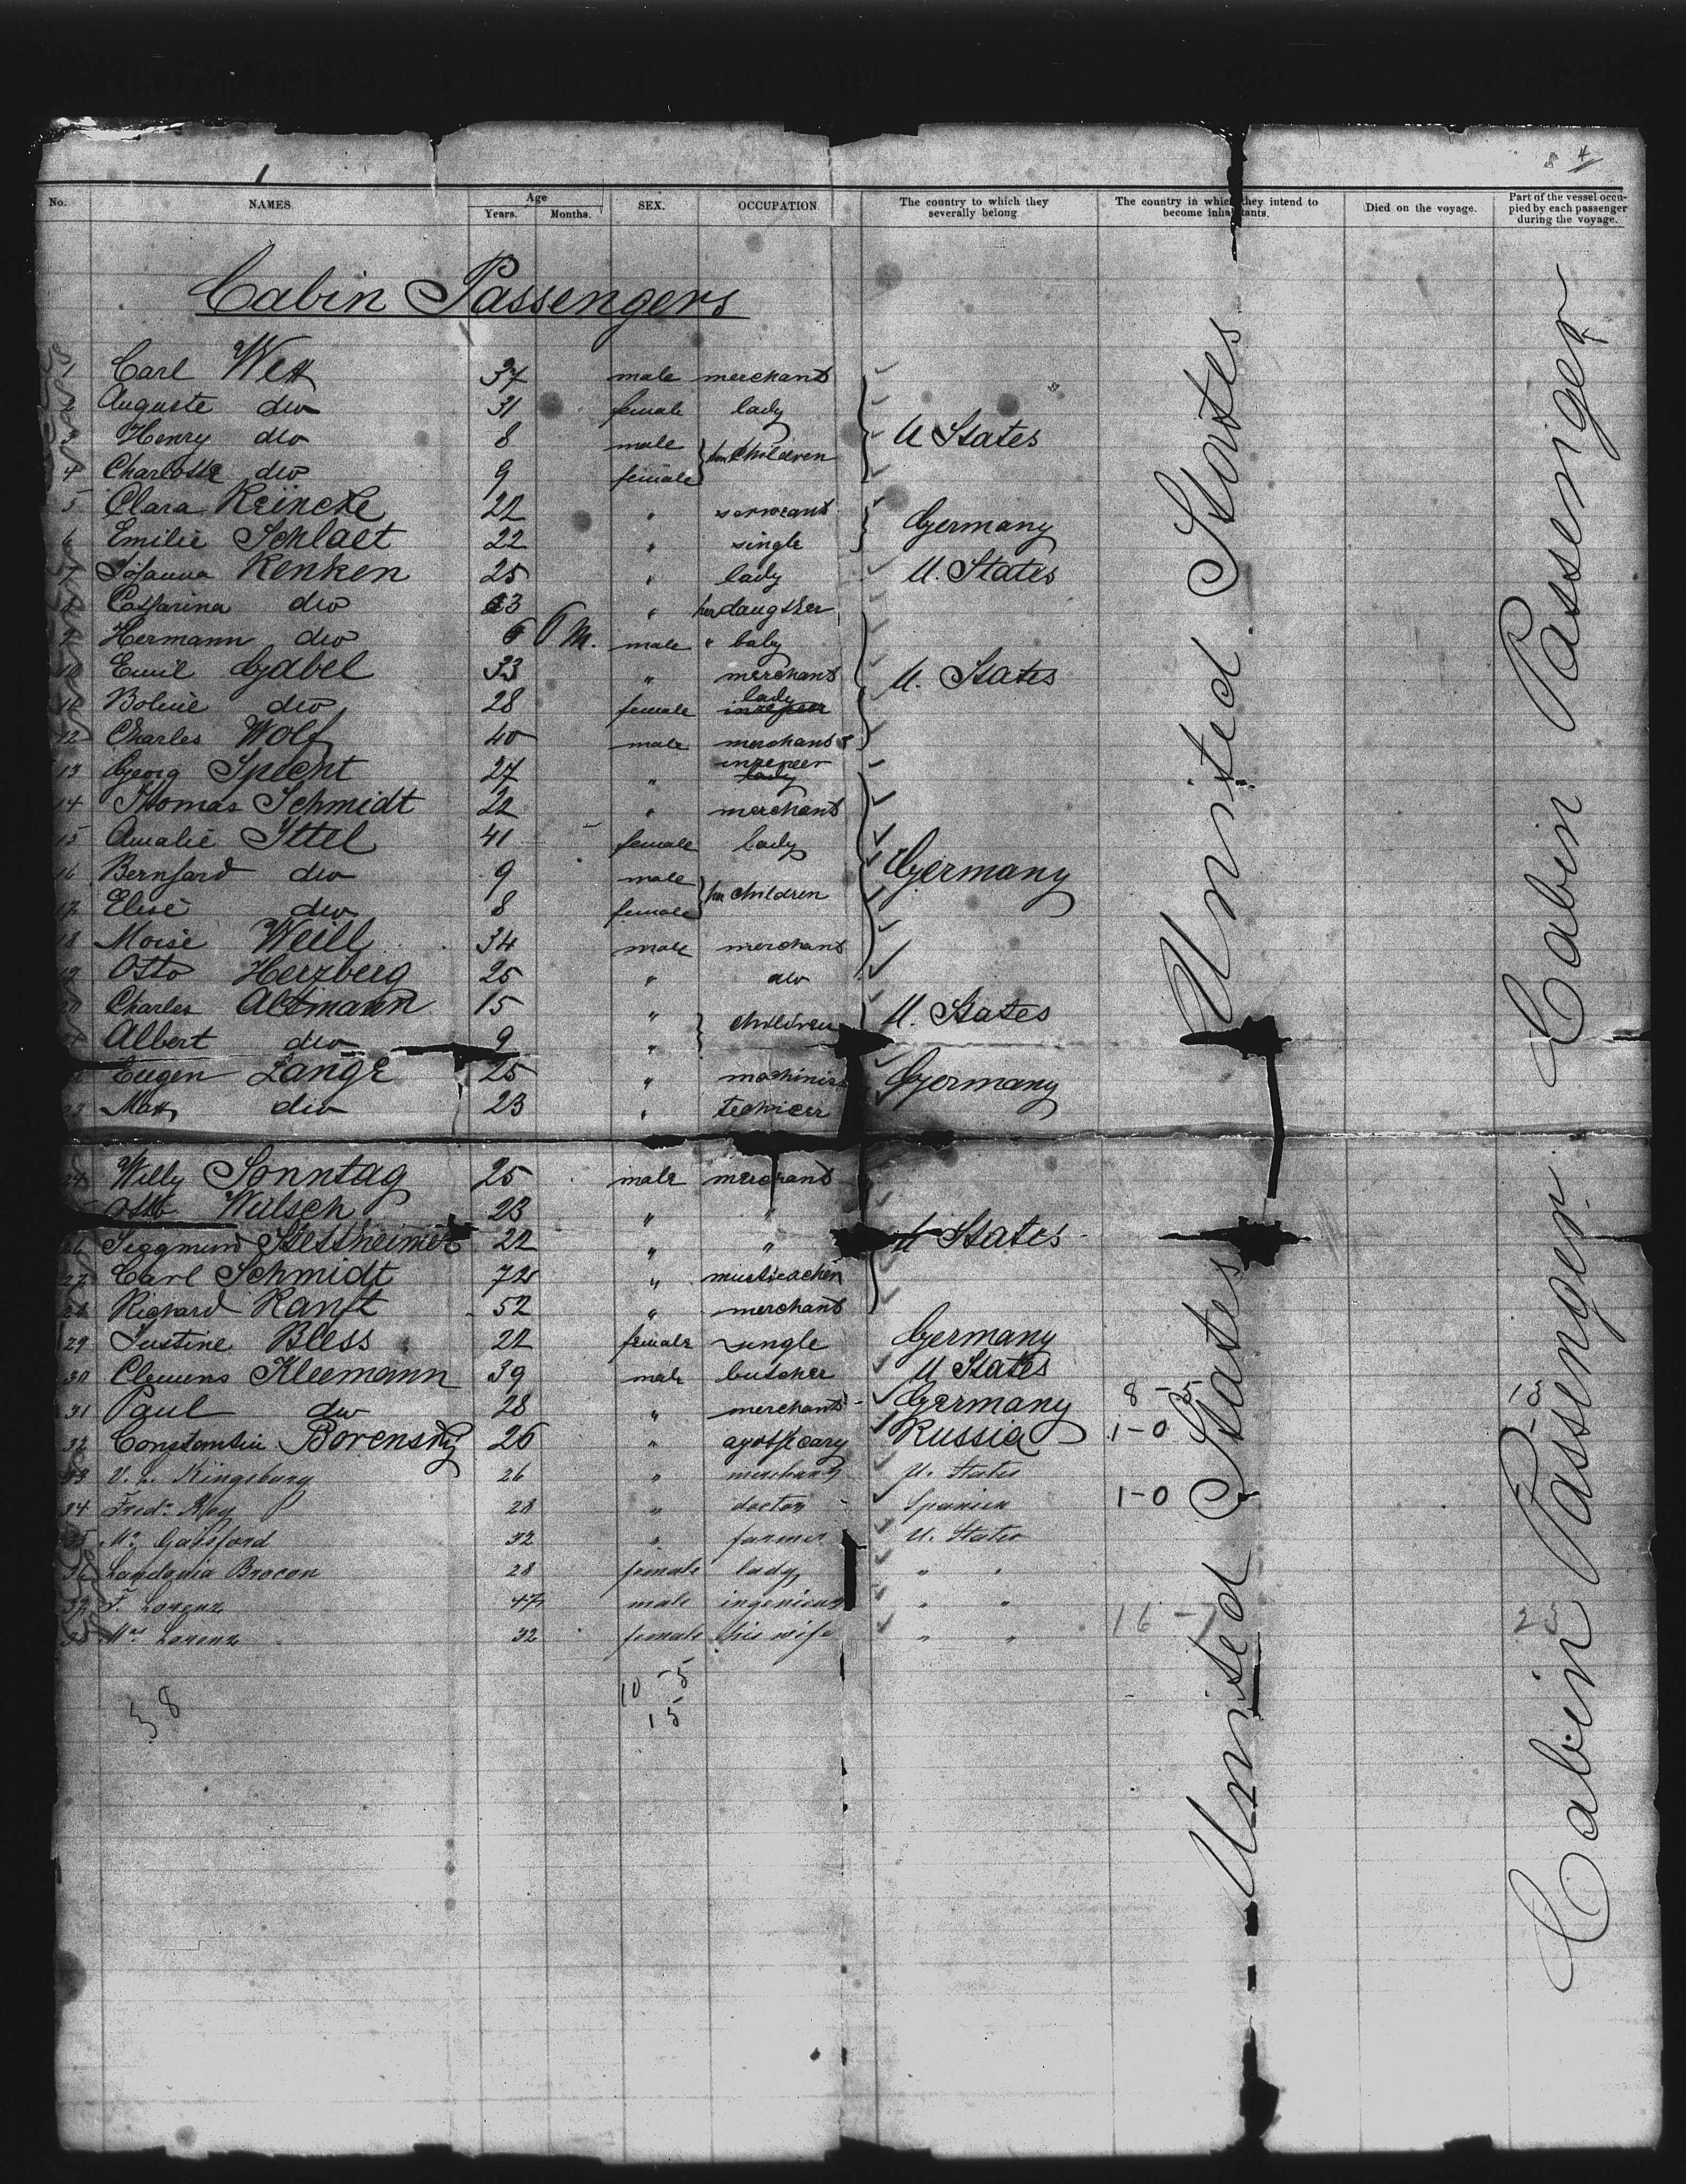 1
8 4
No. NAMES. Age Years. Months. SEX. OCCUPATION. The country to which they severally belong. The country in which they intend to become inhabitants. Died on the voyage. Part of the vessel occupied by each passenger during the voyage.
Cabin Passengers
1 Carl 37 male merchant
2 Auguste do 31 female lady
3 Henry do 8 male children U States
4 Charlotte do 9 female
5 Clara Reincke 22 " servant Germany
6 Emilie Schlaet 22 " single
7 Johanna Renken 25 " lady U. States
8 Catharina do 3 " her daugther
9 Hermann do 6 M. male " baby
10 Emil Gabel 33 " merchant U. States
11 do 28 female lady
12 Charles Wolf 40 male merchant
13 Georg Specht 27 "
14 Thomas Schmidt 22 " merchant
15 Amalie Ittel 41 female lady
16 Bernhard do 9 male her children Germany
17 Elise do 8 female
18 Moise Weill 34 male merchant
19 Otto Herzberg 25 " do
20 Charles Altmann 15 " children U. States
Albert do 9 "
Eugen Lange 25 " machinist Germany
23 Max do 23 "
24 Willy Sonntag 25 male merchant
Otto Wülsch 23 " "
26 Siggmund Stettheimer 22 " " U States
27 Carl Schmidt 72 "
28 Richard Ranft 52 " merchant
29 Justine Bless 22 female single Germany
30 Clemens Kleemann 39 male butcher U States
31 Paul do 28 " merchant Germany 8-5 13
32 Constantin Borensky 26 " apothecary Russia 1-0
33 V. L. Kingsbury 26 " merchant U. States
34 Fredr. 28 " doctor Spanien 1-0
35 Mr. Gaisford 32 " farmer U. States
36 28 female lady " "
37 F. Lorenz 47 male ingenieur " " 16-7 23
38 Mrs Lorenz 32 female his wife " "
10-5
15
38
United States
United States
Cabin Passenger
Cabin Passenger